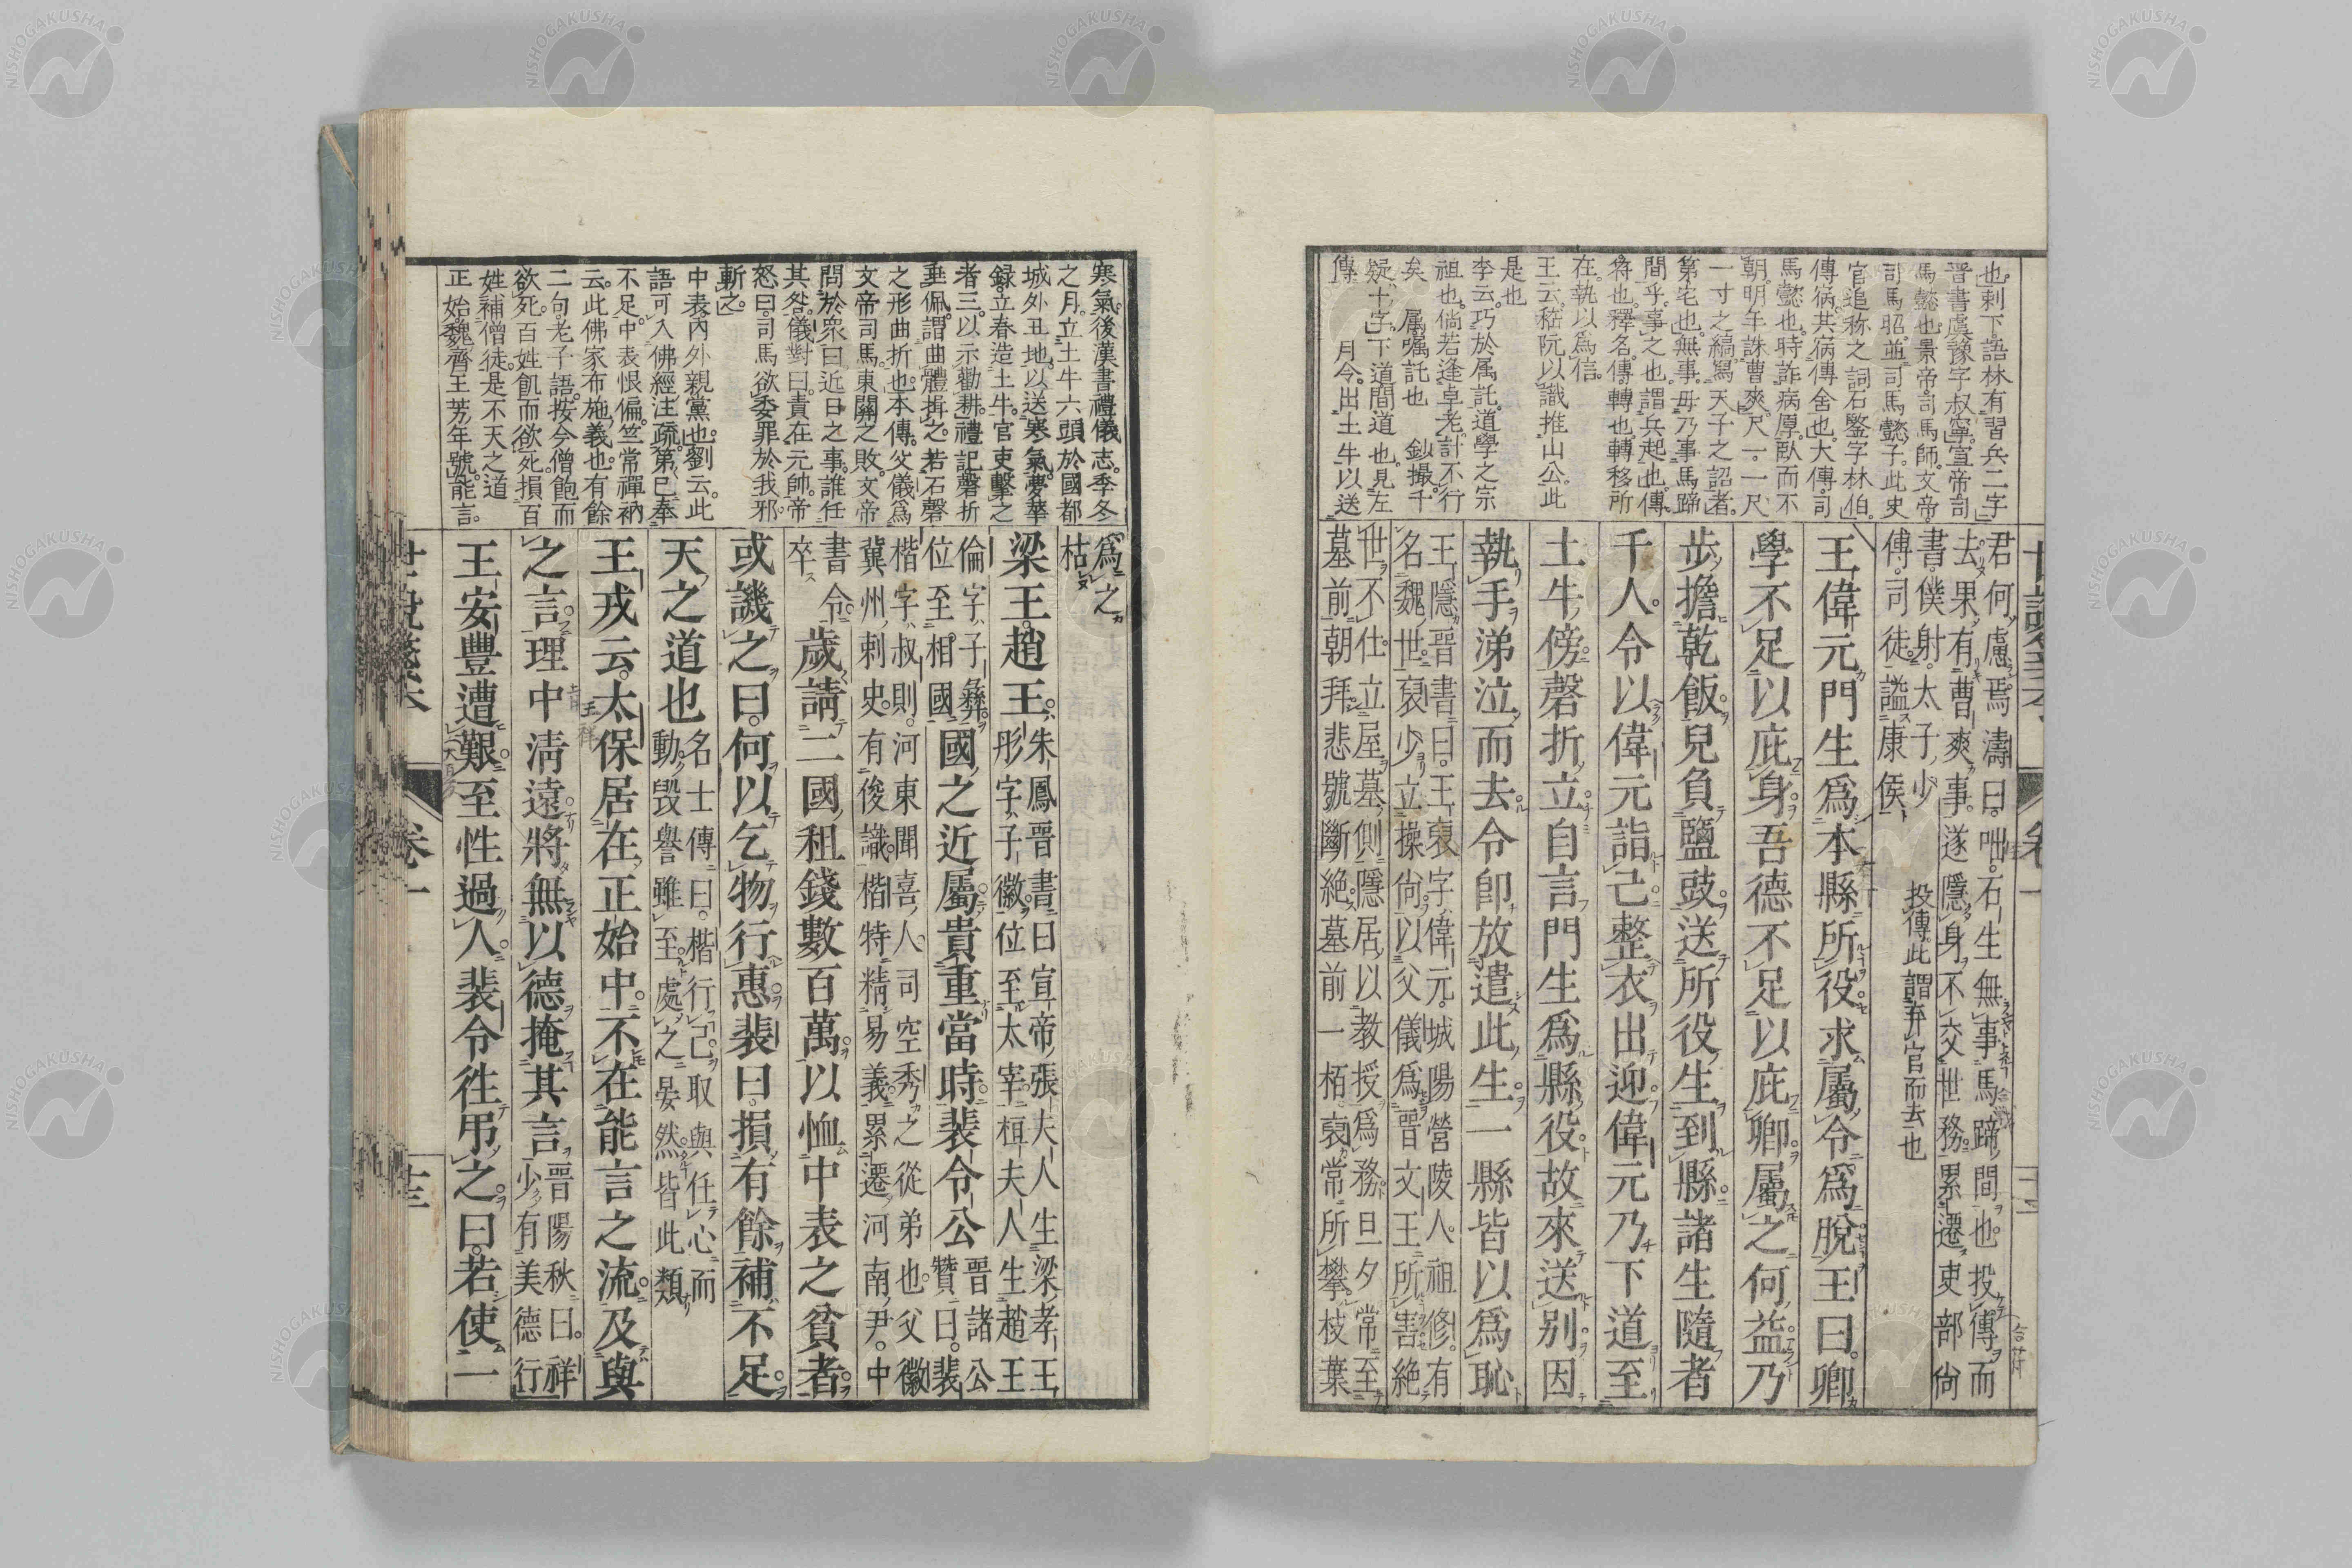 也剌下語林有習兵二字
晋書虞豫字叔寧宣帝司
馬懿也景帝司馬師文帝
司馬昭並司馬懿子此史
官追称之詞石鑒字林伯
傳病其病傳舍也大傳司
馬懿也時詐病厚臥而不
朝明年誅曹爽尺一一尺
一寸之縞寫天子之詔者
第宅也無事毋乃事馬蹄
間乎事之也謂兵起也傳
符也釋名傳轉也轉移所
在執以爲信
王云嵇阮以識推山公此
是也
李云巧於属託道學之宗
祖也倘若逢卓老計不行
矣 属嘱託也 鈔撮千
疑十字下道間道也見左
傳 月令出土牛以送
君何慮焉濤曰咄石生無事馬蹄間也投傳而
去果有曹爽事遂隱身不交世務累遷吏部尙
書僕射太子少
傅司徒謚康侯
投傳此謂弃官而去也
王偉元門生爲本縣所役求屬令爲脫王曰卿
學不足以庇身吾德不足以庇卿屬之何益乃
步擔乾飯兒負鹽豉送所役生到縣諸生隨者
千人令以偉元詣己整衣出迎偉元乃下道至
土牛傍磬折立自言門生爲縣役故來送别因
執手涕泣而去令卽放遣此生一縣皆以爲恥
王隱晋書曰王裒字偉元城陽營陵人祖修有
名魏世裒少立操尙以父儀爲晋文王所害絕
世不仕立屋墓側隱居以教授爲務旦夕常至
墓前朝拜悲號斷絕墓前一栢裒常所攀枝葉
寒氣後漢書禮儀志季冬
之月立土牛六頭於國都
城外丑地以送寒氣夢華
録立春造土牛官吏擊之
者三以示勸耕禮記磬折
垂佩謂曲體揖之若石磬
之形曲折也本傳父儀爲
文帝司馬東關之敗文帝
問於衆曰近日之事誰任
其咎儀對曰責在元帥帝
怒曰司馬欲委罪於我邪
斬之
中表内外親黨也劉云此
語可入佛經注疏第已奉
不足中表恨偏竺常禪衲
云此佛家布施義也有餘
二句老子語按今僧飽而
欲死百姓飢而欲死損百
姓補僧徒是不天之道
正始魏齊王芳年號能言
爲之
枯
梁王趙王
朱鳳晋書曰宣帝張夫人生梁孝王
肜字子徽位至太宰桓夫人生趙王
倫字子彝
位至相國
國之近屬貴重當時裴令公
晋諸公
贊曰裴
楷字叔則河東聞喜人司空秀之從弟也父徽
冀州剌史有俊識楷特精易義累遷河南尹中
書令
卒
歲請二國租錢數百萬以恤中表之貧者
或譏之曰何以乞物行惠裴曰損有餘補不足
天之道也
名士傳曰楷行己取與任心而
動毀譽雖至處之晏然皆此類
王戎云太保居在正始中不在能言之流及與
王祥
之言理中淸遠將無以德掩其言
晋陽秋曰祥
少有美德行
王安豐遭艱至性過人裴令徃弔之曰若使一
卷一